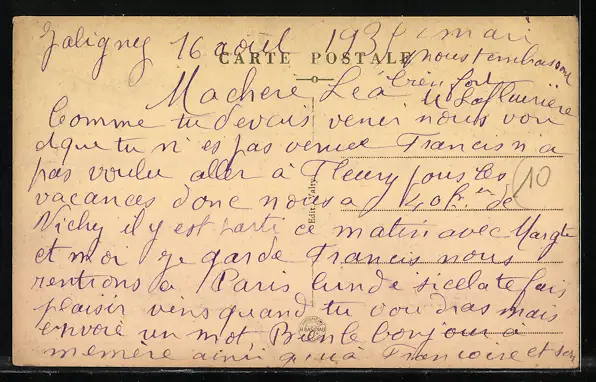 Jaligney 16 aout 193
CARTE POSTALE
mari
nous t'embrassons
bien fort
M Lafleurière
Ma chere Léa
Comme tu devais venir nous voir
et que tu n'es pas venue Francis n'a
pas voulu aller à Fleury tous les
vacances donc nous a 40 Kr. de
Vichy il y est parti ce matin avec Margte
et moi je garde Francis nous
rentrons a Paris lundi si cela te fais
plaisir viens quand tu voudras mais
envoie un mot Bien le bonjour a
memère ainsi qu'à Francoise et son
10
Edit. Valty